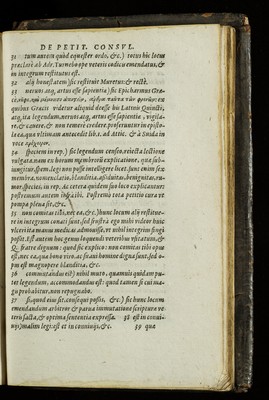 DE PETIT. CONSVL.
31 tum autem quòd equester ordo, &c.) totus hic locus
præclarè ab Adr. Turnebo ope veteris codicis emendatus, &
in integrum restitutus est.
32 alij honestatem) sic restituit Muretus: & rectè.
33 neruos atq; artus esse sapientiæ) sic Epicharmus Græ-
quibus Græcis videtur aliquid deesse his Latinis Quinti:
atq; ita legendum, neruos atq, artus esse sapientiæ, vigila-
re, & cauere, & non temerè credere. proferuntur in episto-
la ea, quæ vltimam antecedit lib. 1. ad Attic. & à Suida in
voce
34 speciem in rep.) sic legendum censeo, reiecta lectione
vulgata. nam ex horum membrorū explicatione, quæ sub-
iungitur, spem legi non posse intelligere licet. sunt enim sex
membra, nomenclatio, blanditia, assiduitas, benignitas, ru-
mor, species in rep. Ac cetera quidem suo loco explicantur:
postremum autem
pompæ plena sit, &c.
35 non comitas tibi, vt ea, &c.) hunc locum alij restitue-
re in integrum conati sunt. sed frustrà. ego mihi videor huic
vlceri ita manus medicas admouisse, vt nihil integrius fingi
possit. Est autem hoc genus loquendi veteribus vsitatum, &
Q. fratre dignum: quod sic explico: non comitas tibi opus
est, nec ea, quæ bono viro, ac suaui homine digna sunt. sed o-
pus est magnopere blanditia. &c.
36 commutandus est) nihil muto, quamuis quidam pu-
tet legendum, accommodandus est: quod tamen si cui ma-
gis probabitur, non repugnabo.
37 si, quod eius sit, consequi possis, &c.) sic hunc locum
emendandum arbitror & parua immutatione scripturæ ve-
teris facta, & optima sententia expressa. 38 est in conui-
uijs) malim legi: est et in conuiuijs, &c. 39 quæ